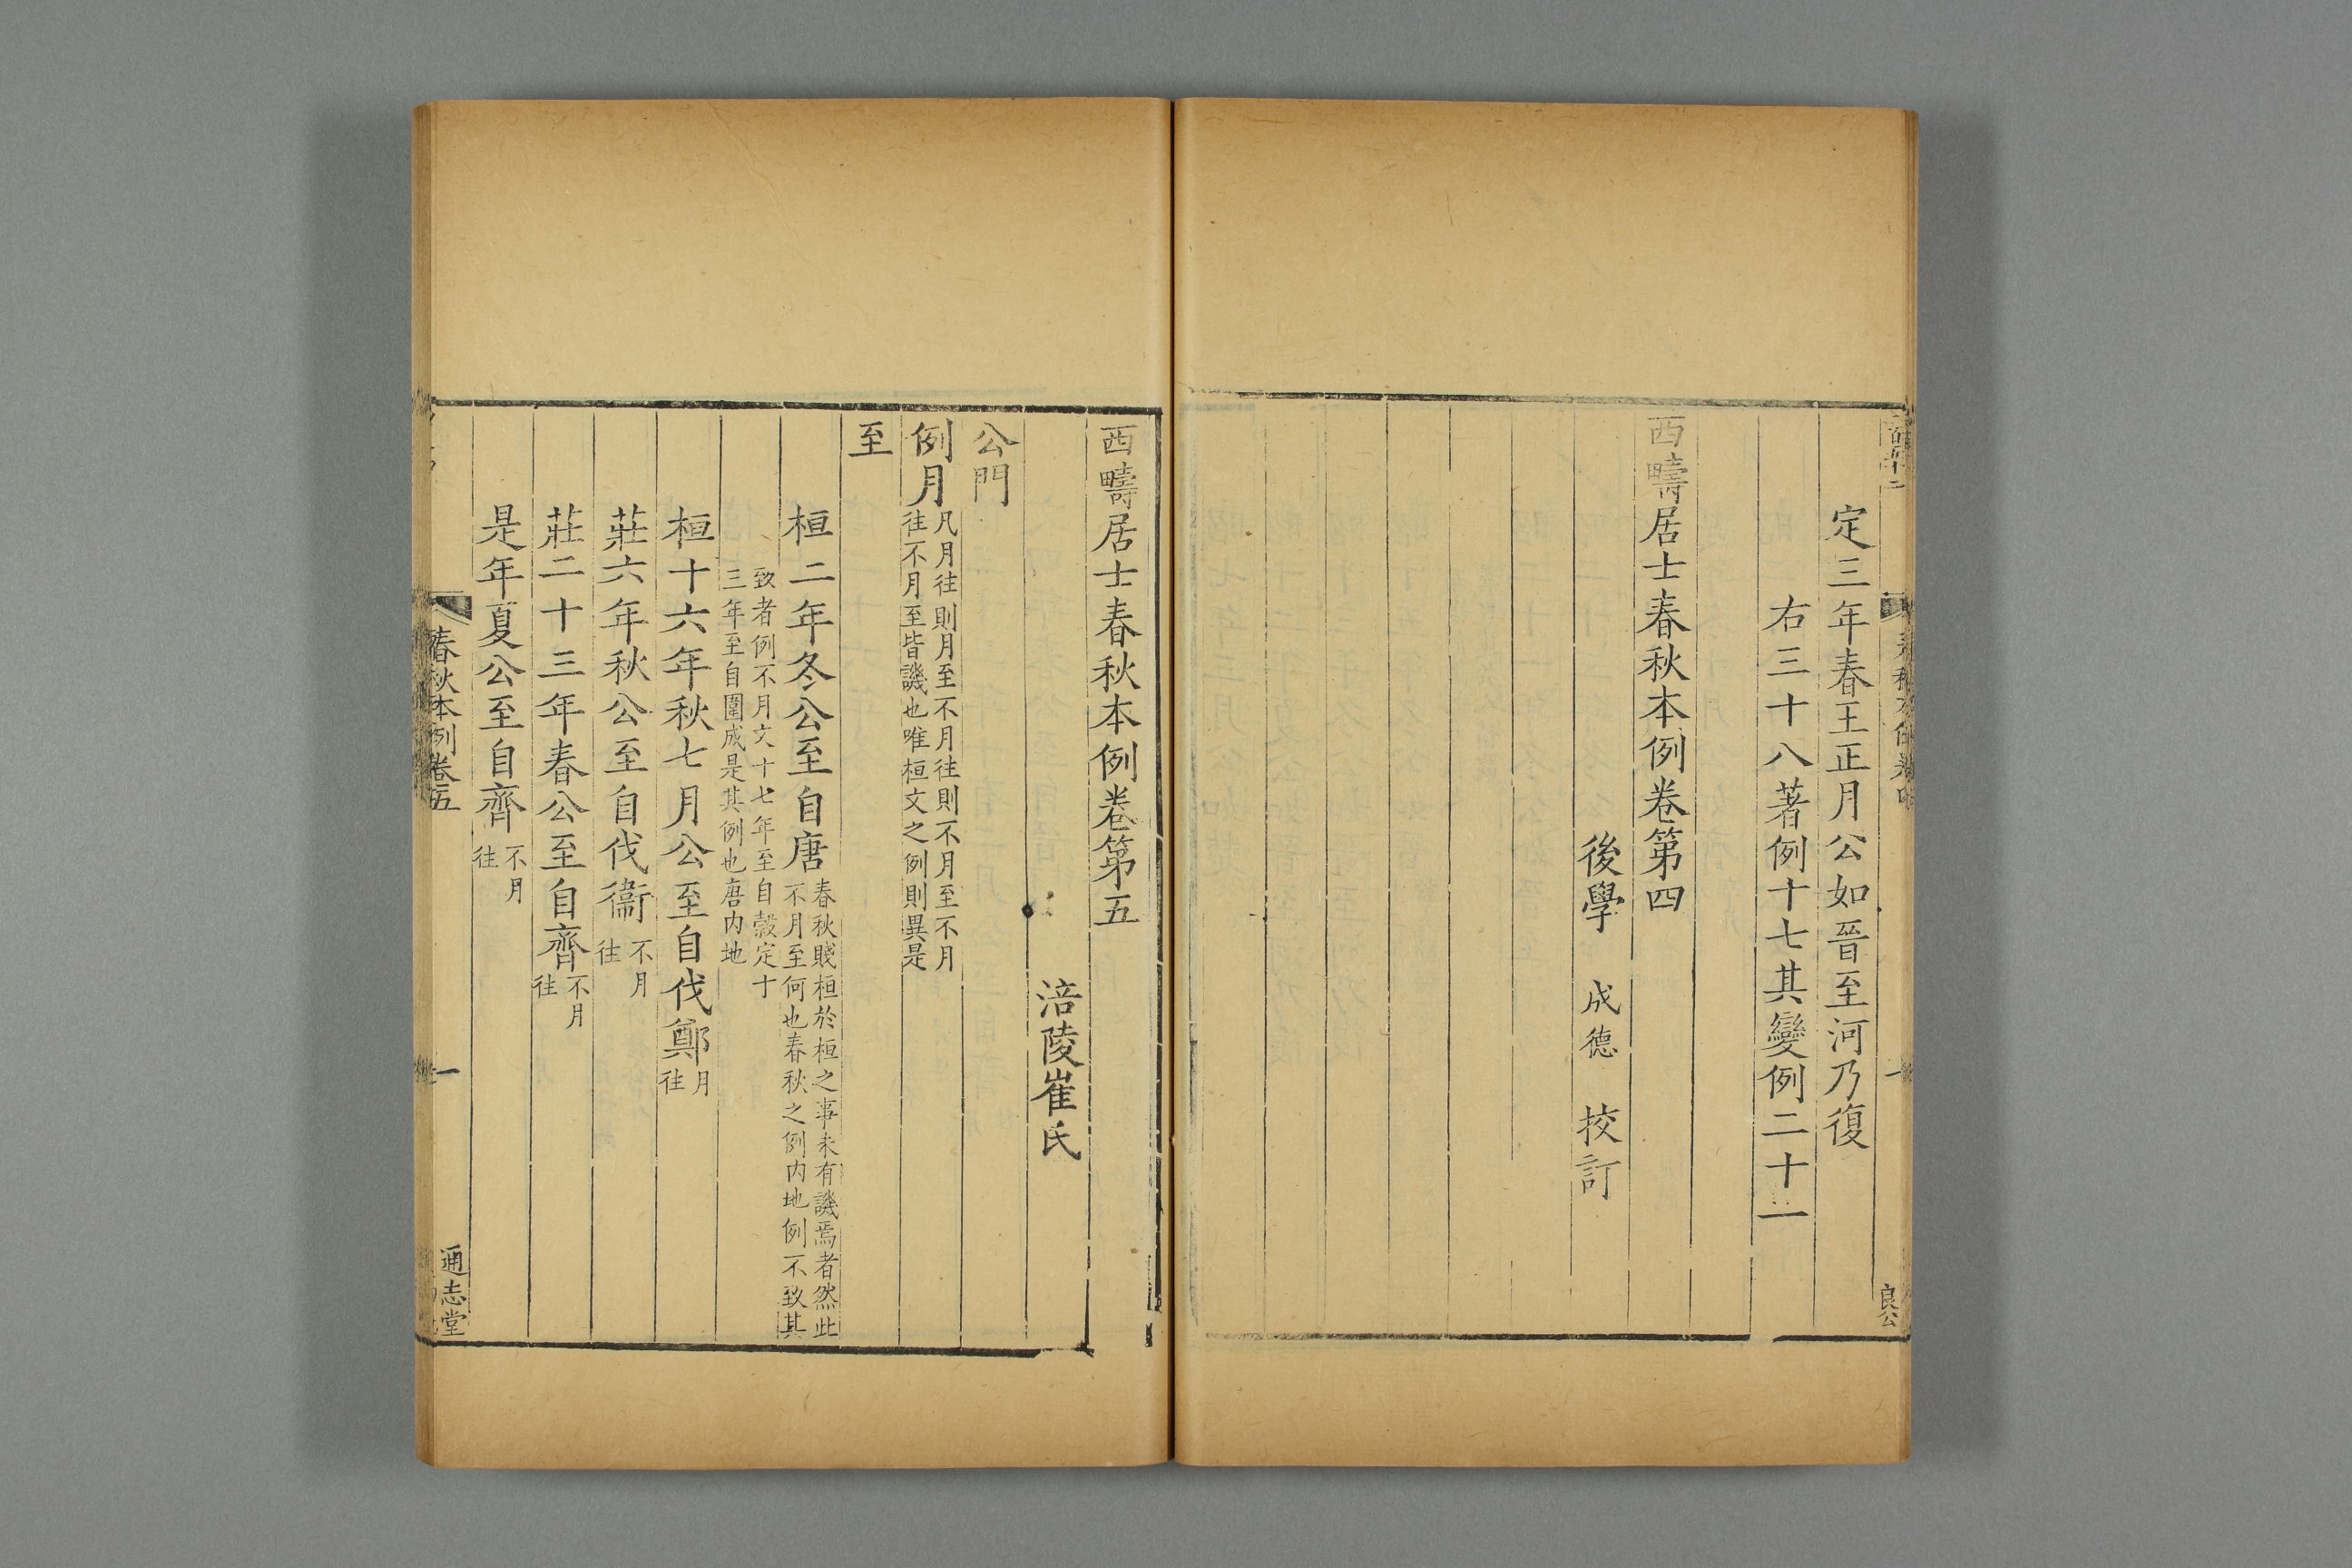 定三年春王正月公如晉至河乃復
右三十八著例十七其變例二十一
西疇居士春秋本例卷第四
後學 成德 校訂
良公
西疇居士春秋本例卷第五
涪陵崔氏
公門
例月凡月往則月至不月往則不月至不月
往不月至皆譏也唯桓文之例則異是
至
桓二年冬公至自唐春秋賤桓於桓之事未有譏焉者然此
不月至何也春秋之例内地例不致其
致者例不月文十七年至自穀定十
三年至自圍成是其例也唐内地
桓十六年秋七月公至自伐鄭月
往
莊六年秋公至自伐衞不月
往
莊二十三年春公至自齊不月
往
是年夏公至自齊不月
往
春秋本例卷五
一
通志堂